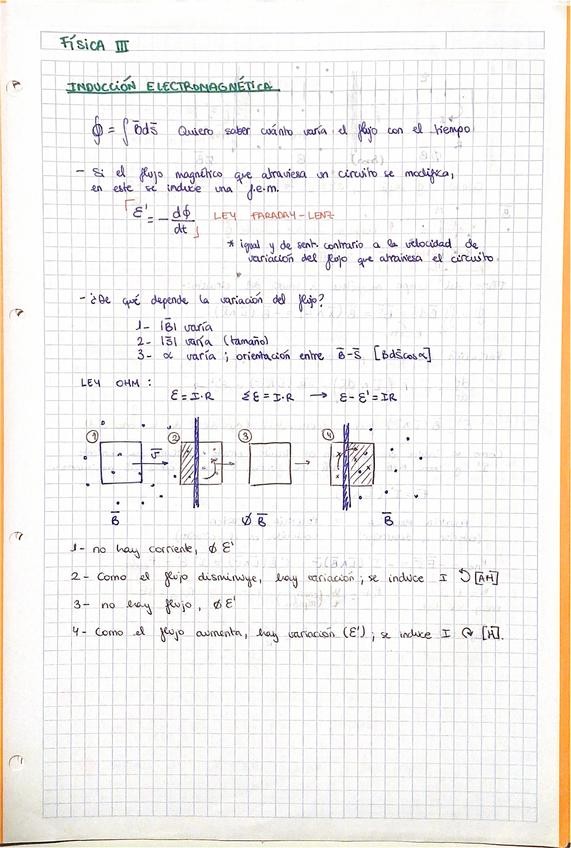 FÍSICA III
INDUCCIÓN ELECTROMAGNÉTICA
ϕ = ∫ B̄ds̄ Quiero saber cuánto varía el flujo con el tiempo
- Si el flujo magnético que atraviesa un circuito se modifica,
en este se induce una f.e.m.
Ɛ' = - dϕ/dt LEY FARADAY-LENZ
* igual y de sent. contrario a la velocidad de
variación del flujo que atraviesa el circuito.
- ¿De qué depende la variación del flujo?
1- |B̄| varía
2- |S̄| varía (tamaño)
3- α varía ; orientación entre B̄-S̄ [BdS̄cosα]
LEY OHM :
Ɛ = I·R ΣƐ = I·R → Ɛ - Ɛ' = IR
1 v̄ 2 3 4
B̄ ∅ B̄ B̄
1- no hay corriente, ∅ Ɛ'
2- Como el flujo disminuye, hay variación ; se induce I ↺ [AH]
3- no hay flujo , ∅ Ɛ'
4- Como el flujo aumenta, hay variación (Ɛ') ; se induce I ↻ [H].